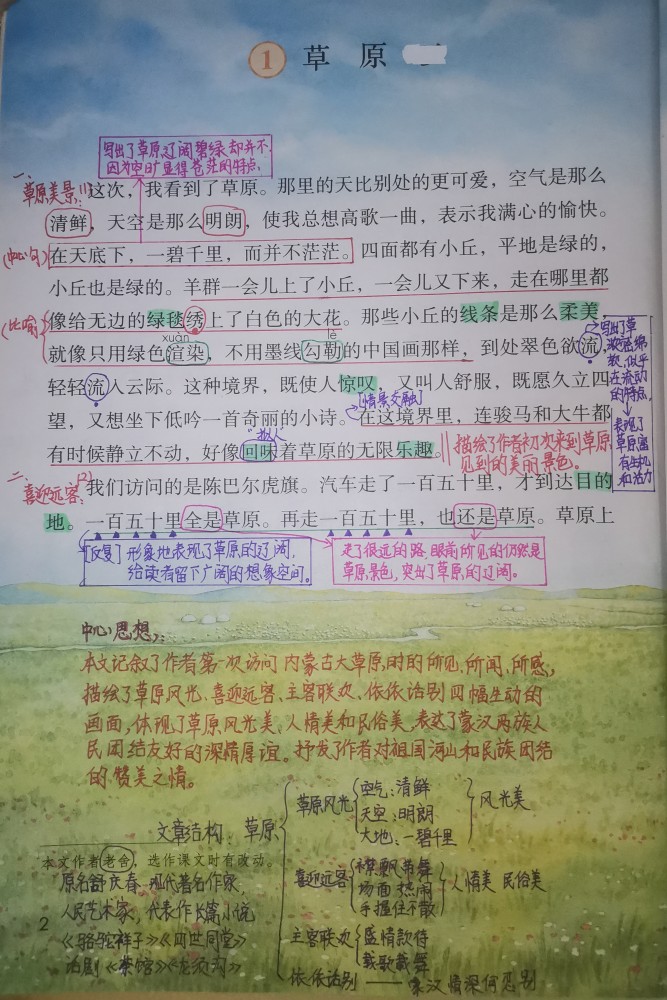 1 草 原
写出了草原辽阔碧绿却并不
因为空旷显得苍茫的特点。
一、
草原美景
这次，我看到了草原。那里的天比别处的更可爱，空气是那么
清鲜，天空是那么明朗，使我总想高歌一曲，表示我满心的愉快。
(中心句)
在天底下，一碧千里，而并不茫茫。四面都有小丘，平地是绿的，
小丘也是绿的。羊群一会儿上了小丘，一会儿又下来，走在哪里都
(比喻)
像给无边的绿毯绣上了白色的大花。那些小丘的线条是那么柔美，
xuàn lè
就像只用绿色渲染，不用墨线勾勒的中国画那样，到处翠色欲流，
轻轻流入云际。这种境界，既使人惊叹，又叫人舒服，既愿久立四
[情景交融]
望，又想坐下低吟一首奇丽的小诗。在这境界里，连骏马和大牛都
拟人
有时候静立不动，好像回味着草原的无限乐趣。
描绘了作者初次来到草原
见到的美丽景色。
写出了草
原
似乎
在流动
的特点
表现了
草原富
有生机
和活力
二、
喜迎远客
(2)
我们访问的是陈巴尔虎旗。汽车走了一百五十里，才到达目的
地。一百五十里全是草原。再走一百五十里，也还是草原。草原上
[反复]形象地表现了草原的辽阔，
给读者留下广阔的想象空间。
走了很远的路，眼前所见的仍然是
草原景色，突出了草原的辽阔。
中心思想：
本文记叙了作者第一次访问内蒙古大草原时的所见、所闻、所感，
描绘了草原风光、喜迎远客、主客联欢、依依话别四幅生动的
画面，体现了草原风光美、人情美和民俗美，表达了蒙汉两族人
民团结友好的深情厚谊。抒发了作者对祖国河山和民族团结
的赞美之情。
文章结构：草原
草原风光
空气：清鲜
天空：明朗
大地：一碧千里
风光美
喜迎远客
襟飘带舞
场面热闹
手握住不散
人情美 民俗美
主客联欢
盛情款待
载歌载舞
依依话别——蒙汉情深何忍别
本文作者老舍，选作课文时有改动。
原名舒庆春，现代著名作家，
人民艺术家，代表作长篇小说
《骆驼祥子》《四世同堂》
话剧《茶馆》《龙须沟》
2